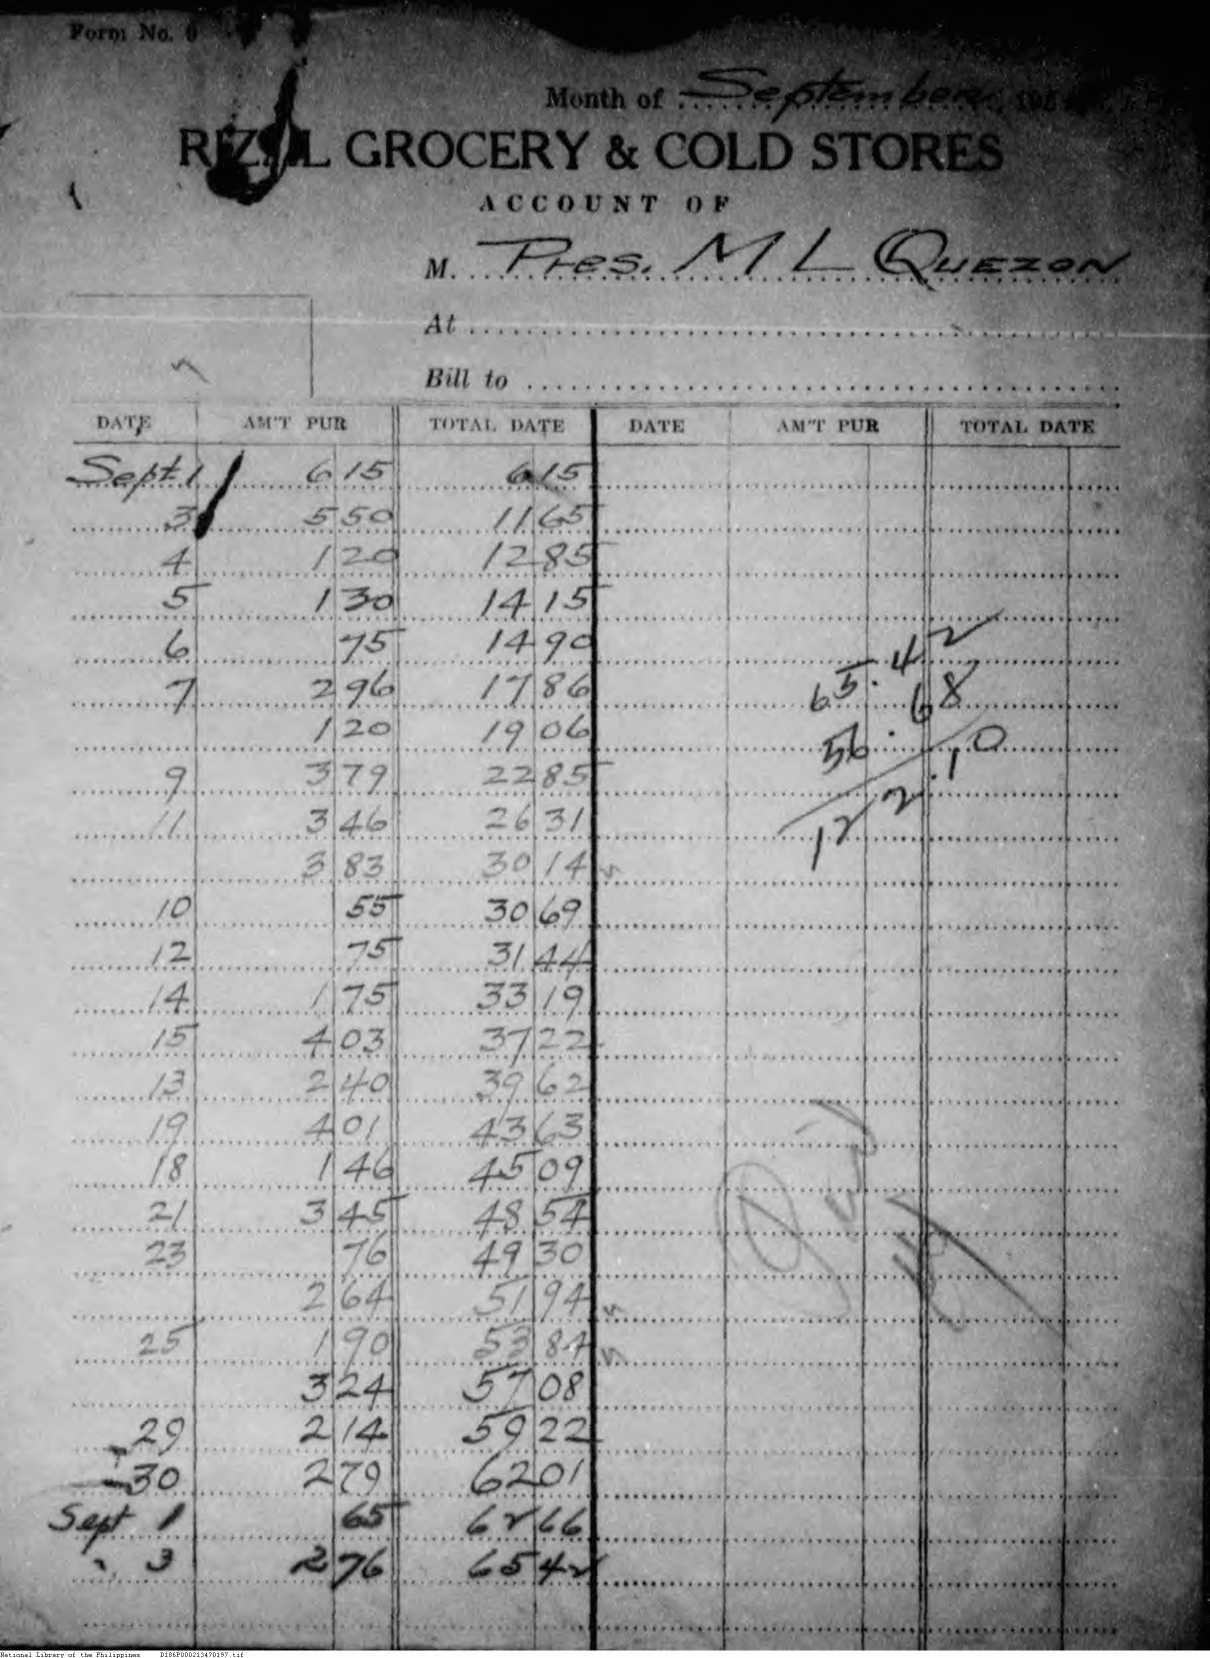 Form No. 9
Month of September 193
RIZAL GROCERY & COLD STORES
ACCOUNT OF
M. Pres. M L QUEZON
At
Bill to
DATE AM'T PUR TOTAL DATE DATE AM'T PUR TOTAL DATE
Sept. 1 6 15 6 15
3 5 50 11 65
4 1 20 12 85
5 1 30 14 15
6 75 14 90
7 2 96 17 86
1 20 19 06
9 3 79 22 85
11 3 46 26 31
3 83 30 14
10 55 30 69
12 75 31 44
14 1 75 33 19
15 4 03 37 22
13 2 40 39 62
19 4 01 43 63
18 1 46 45 09
21 3 45 48 54
23 76 49 30
2 64 51 94
25 1 90 53 84
3 24 57 08
29 2 14 59 22
30 2 79 62 01
Sept 1 65 62 66
" 3 2 76 65 42
65.42
56.68
122.10
National Library of the Philippines D186P000213470197.tif